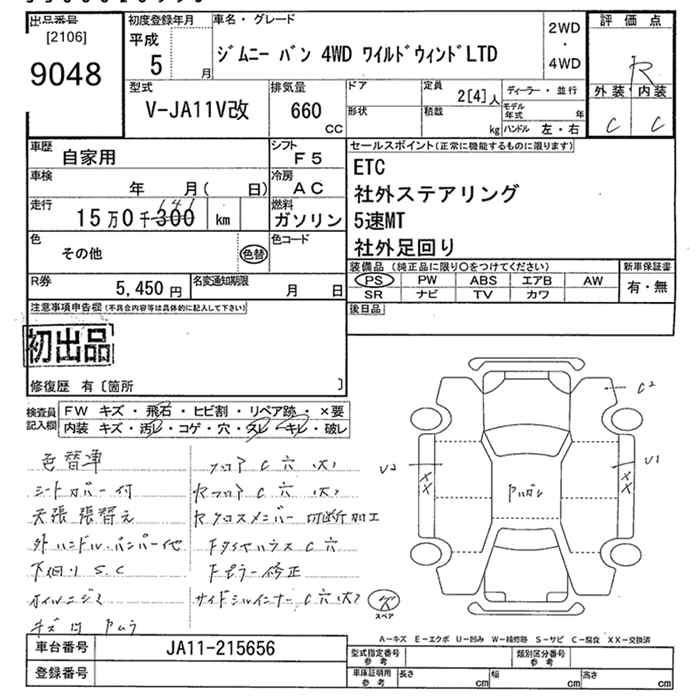 出品番号
[2106]
9048
初度登録年月
平成
5 月
車名・グレード
ジムニー バン 4WD ワイルドウィンドLTD
2WD
・
4WD
評価点
R
外装 内装
C C
型式
V-JA11V改
排気量
660
CC
ドア
形状
定員
2[4]人
積載
kg
ディーラー・並行
モデル年式 年
ハンドル 左・右
車歴
自家用
シフト
F5
車検
年 月( 日)
冷房
AC
走行
15万0千300 km
141
燃料
ガソリン
色
その他
色替
色コード
R券
5,450円
名変通知期限
月 日
セールスポイント(正常に機能するものに限ります)
ETC
社外ステアリング
5速MT
社外足回り
装備品(純正品に限り○をつけてください)
PS PW ABS エアB AW
SR ナビ TV カワ
新車保証書
有・無
後日品
注意事項申告欄(不具合内容等は具体的に記入して下さい)
初出品
修復歴 有〔箇所 〕
検査員記入欄
FW キズ・飛石・ヒビ割・リペア跡・×要
内装 キズ・汚レ・コゲ・穴・スレ・キレ・破レ
色替車
シートカバー付
天張張替え
外ハンドル・バンパー他
下回りS.C
オイルニジミ
フロアC穴(大)
RフロアC穴(大)
Rクロスメンバー切断加工
FタイヤハウスC穴
Fピラー修正
サイドシルインナーC穴(大)
スペア
C2
U2
U1
XX
XX
A-キズ E-エクボ U-凹み W-補修跡 S-サビ C-腐食 XX-交換済
車台番号
JA11-215656
登録番号
型式指定番号
参考
類別区分番号
参考
車庫証明用
参考
長さ cm
幅 cm
高さ cm